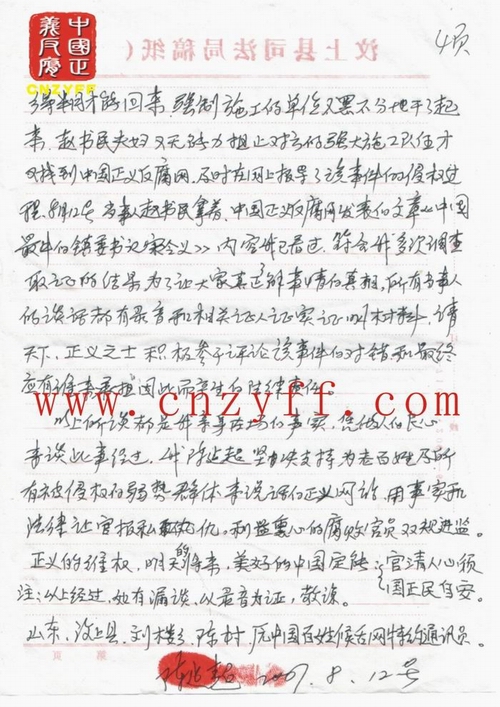 中國正義反腐
CNZYFF
汶上县司法局稿纸(
4页
才能回来,强制施工的单位又黑不分地干了起
来,赵书民夫妇又无能力阻止对方的强大施工队伍才
又找到中国正义反腐网,及时在网上报导了该事件的侵权过
程,8月12号当事人赵书民拿着,中国正义反腐网发表的文章《中国
最牛的镇委书记宋念义》内容我已看过,符合我多次调查
取证的结果为了让大家真正了解事情的真相,所有当事人
的谈话都有录音和相关证人证实证明材料,请
天下,正义之士积极参与评论该事件的对错和最终
应有谁来承担因此而产生的法律责任。
www.cnzyff.com
以上所谈都是我亲身经历的事实,凭做人的良心
来谈此事经过,我陈兆起坚决支持为老百姓及所
有被侵权的弱势群体来说话的正义网站,用事实和
法律让官报私仇,利益熏心的腐败官员双规进监。
正义的维权,明天的将来,美好的中国定能:官清人心顺
国正民自安。
注:以上经过,如有漏误,以录音为证,敬谅。
山东,汶上县,刘楼乡,陈村,原中国百姓喉舌网特约通讯员。
陈兆起 2007.8.12号